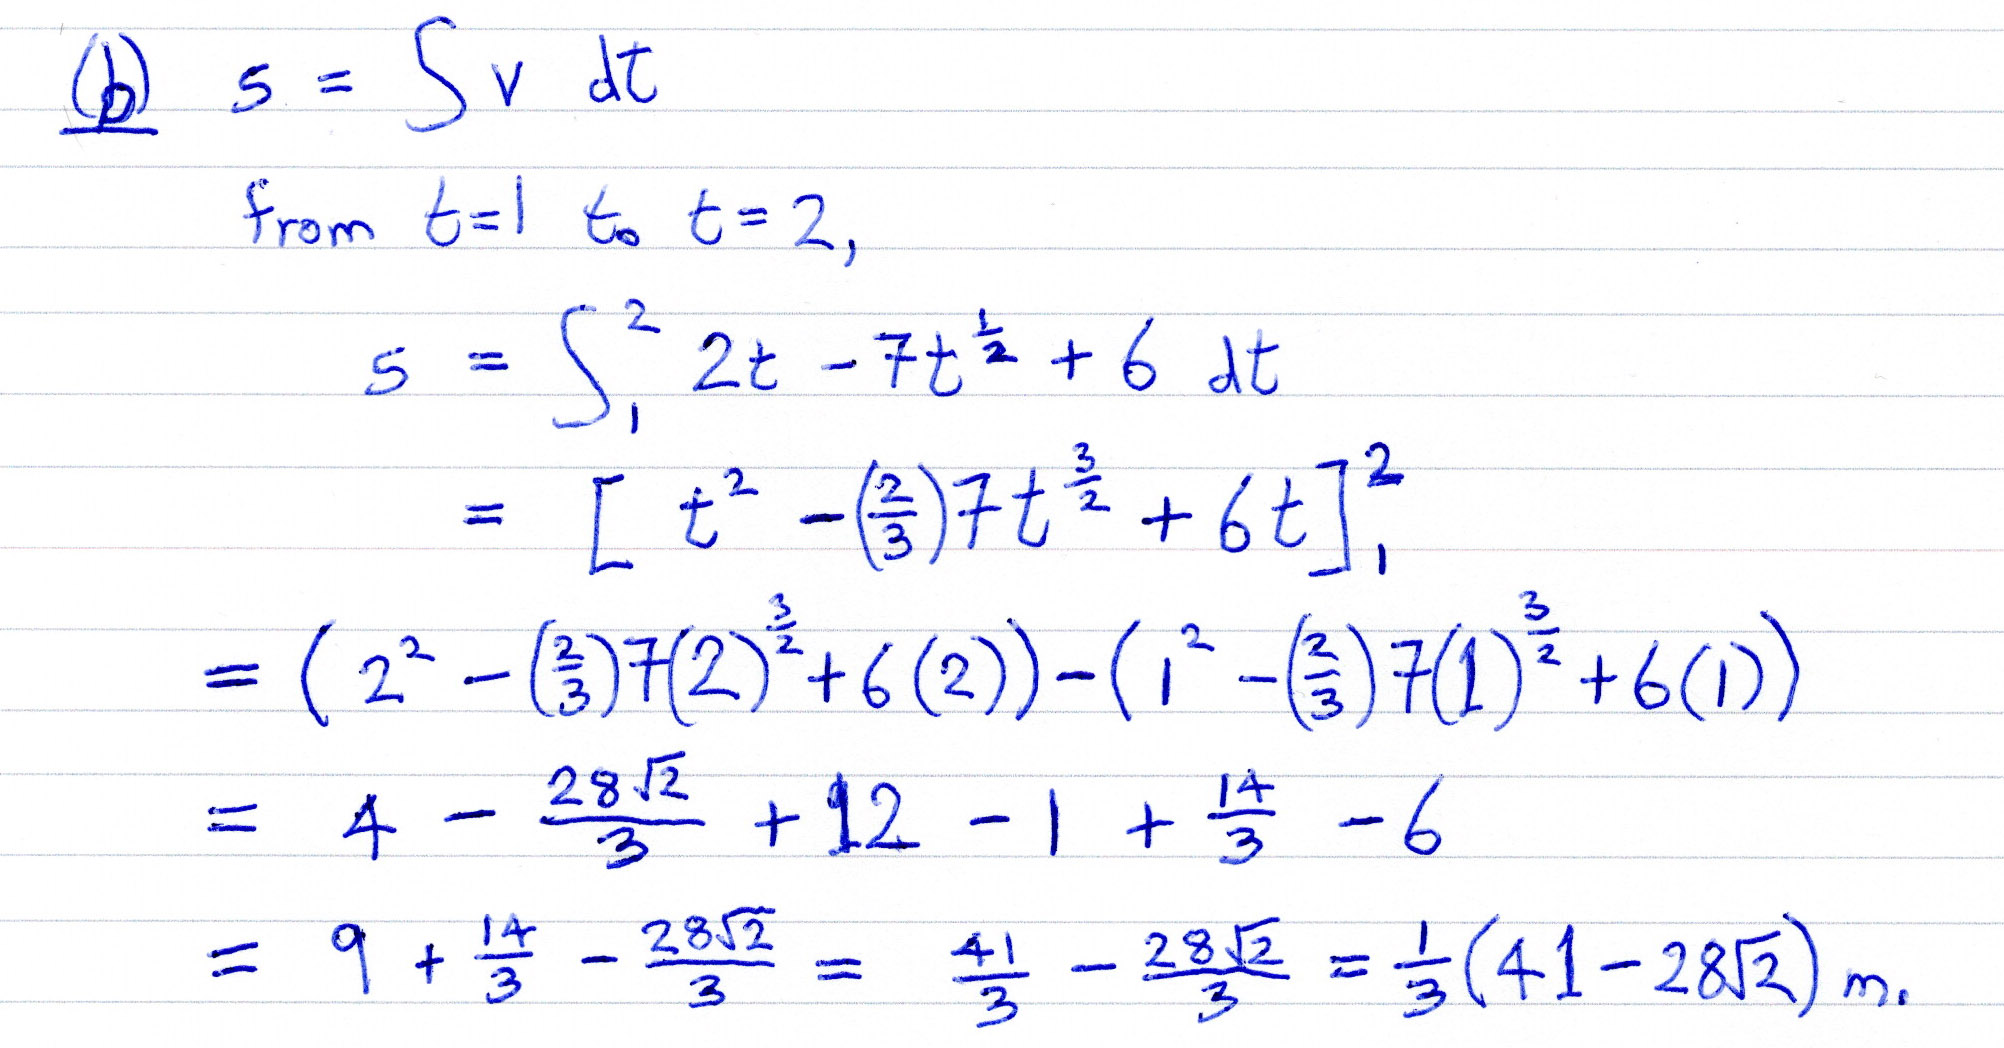 (b) s = ∫ v dt
from t=1 to t=2,
s = ∫₁² 2t - 7t^(1/2) + 6 dt
= [ t² - (2/3)7t^(3/2) + 6t ]₁²
= ( 2² - (2/3)7(2)^(3/2) + 6(2)) - ( 1² - (2/3)7(1)^(3/2) + 6(1))
= 4 - 28√2/3 + 12 - 1 + 14/3 - 6
= 9 + 14/3 - 28√2/3 = 41/3 - 28√2/3 = 1/3 (41 - 28√2) m.